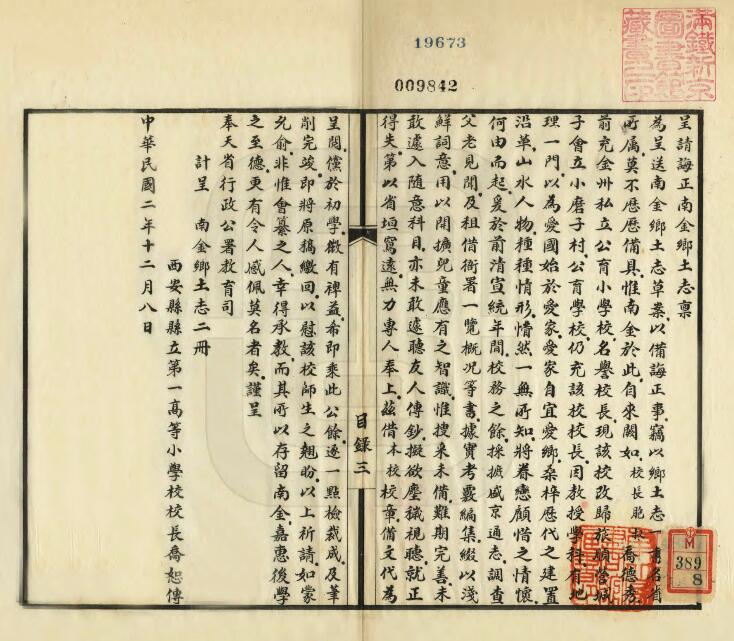 19673
009842
滿鐵新京圖書館藏書之印
呈請誨正南金鄉土志禀
為呈送南金鄉土志草案以備誨正事竊以鄉土志一書各省
所屬莫不歷歷備具惟南金於此自來闕如校長胞叔喬德秀
前充金州私立公育小學校名譽校長現該校改歸旅順營城
子會立小磨子村公育學校仍充該校校長因教授學科有地
理一門以為愛國始於愛家愛家自宜愛鄉桑梓歷代之建置
沿革山水人物種種情形懵然一無所知將眷戀顧惜之情懷
何由而起爰於前清宣統年間校務之餘採摭盛京通志調查
父老見聞及租借衙署一覽概況等書據實考覈編集綴以淺
鮮詞意用以開擴兒童應有之智識惟搜采未備難期完善未
敢遽入隨意科目亦未敢遽聽友人傳鈔擬欲塵穢視聽就正
得失第以省垣寫遠無力專人奉上茲借本校校章備文代為
目錄三
呈閱儻於初學微有裨益希即乘此公餘逐一點檢裁成及筆
削完竣即將原稿繳回以慰該校師生之翹盼以上祈請如蒙
允俞非惟會纂之人幸得承教而其所以存留南金嘉惠後學
之至德更有令人感佩莫名者矣謹呈
奉天省行政公署教育司
計呈 南金鄉土志二冊
西安縣縣立第一高等小學校校長喬恕傳
中華民國二年十二月八日
M
389
8